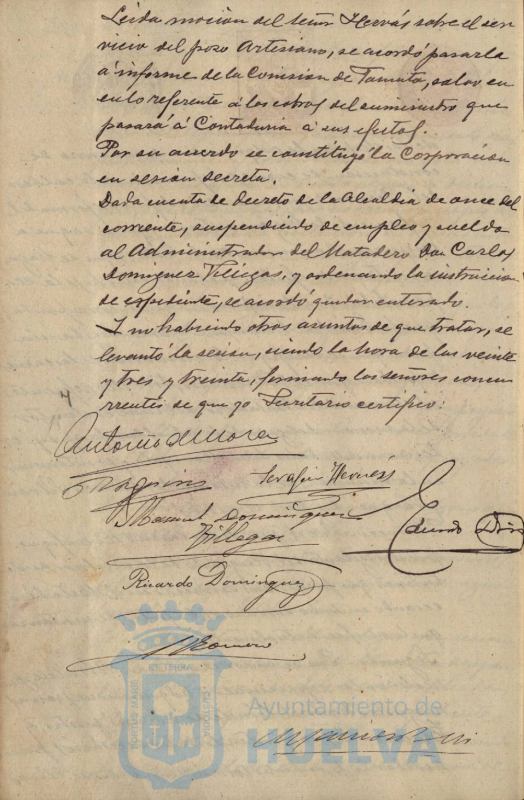 Leida moción del señor Hervás sobre el ser
vicio del pozo Artesiano, se acordó pasarla
á informe de la Comision de Tamuta, salvo en
en lo referente á los cobros del suministro que
pasará á Contaduria á sus efectos.
Por su acuerdo se constituyó la Corporación
en sesión secreta.
Dada cuenta de decreto de la Alcaldia de once del
corriente, suspendiendo de empleo y sueldo
al Administrador del Matadero Don Carlos
Dominguez Villegas, y ordenando la instruccion
de expediente, se acordó quedar enterado.
Y no habiendo otros asuntos de que tratar, se
levantó la sesion, siendo la hora de las veinte
y tres y treinta, firmando los señores concu
rrentes de que yo Secretario certifico:
Antonio de Mora
Serafin Hervás
Manuel Dominguez
Villegas
Eduardo
Ricardo Dominguez
Romero
PORTUS MARIS
ET TERRÆ
CUSTODIA
Ayuntamiento de
HUELVA